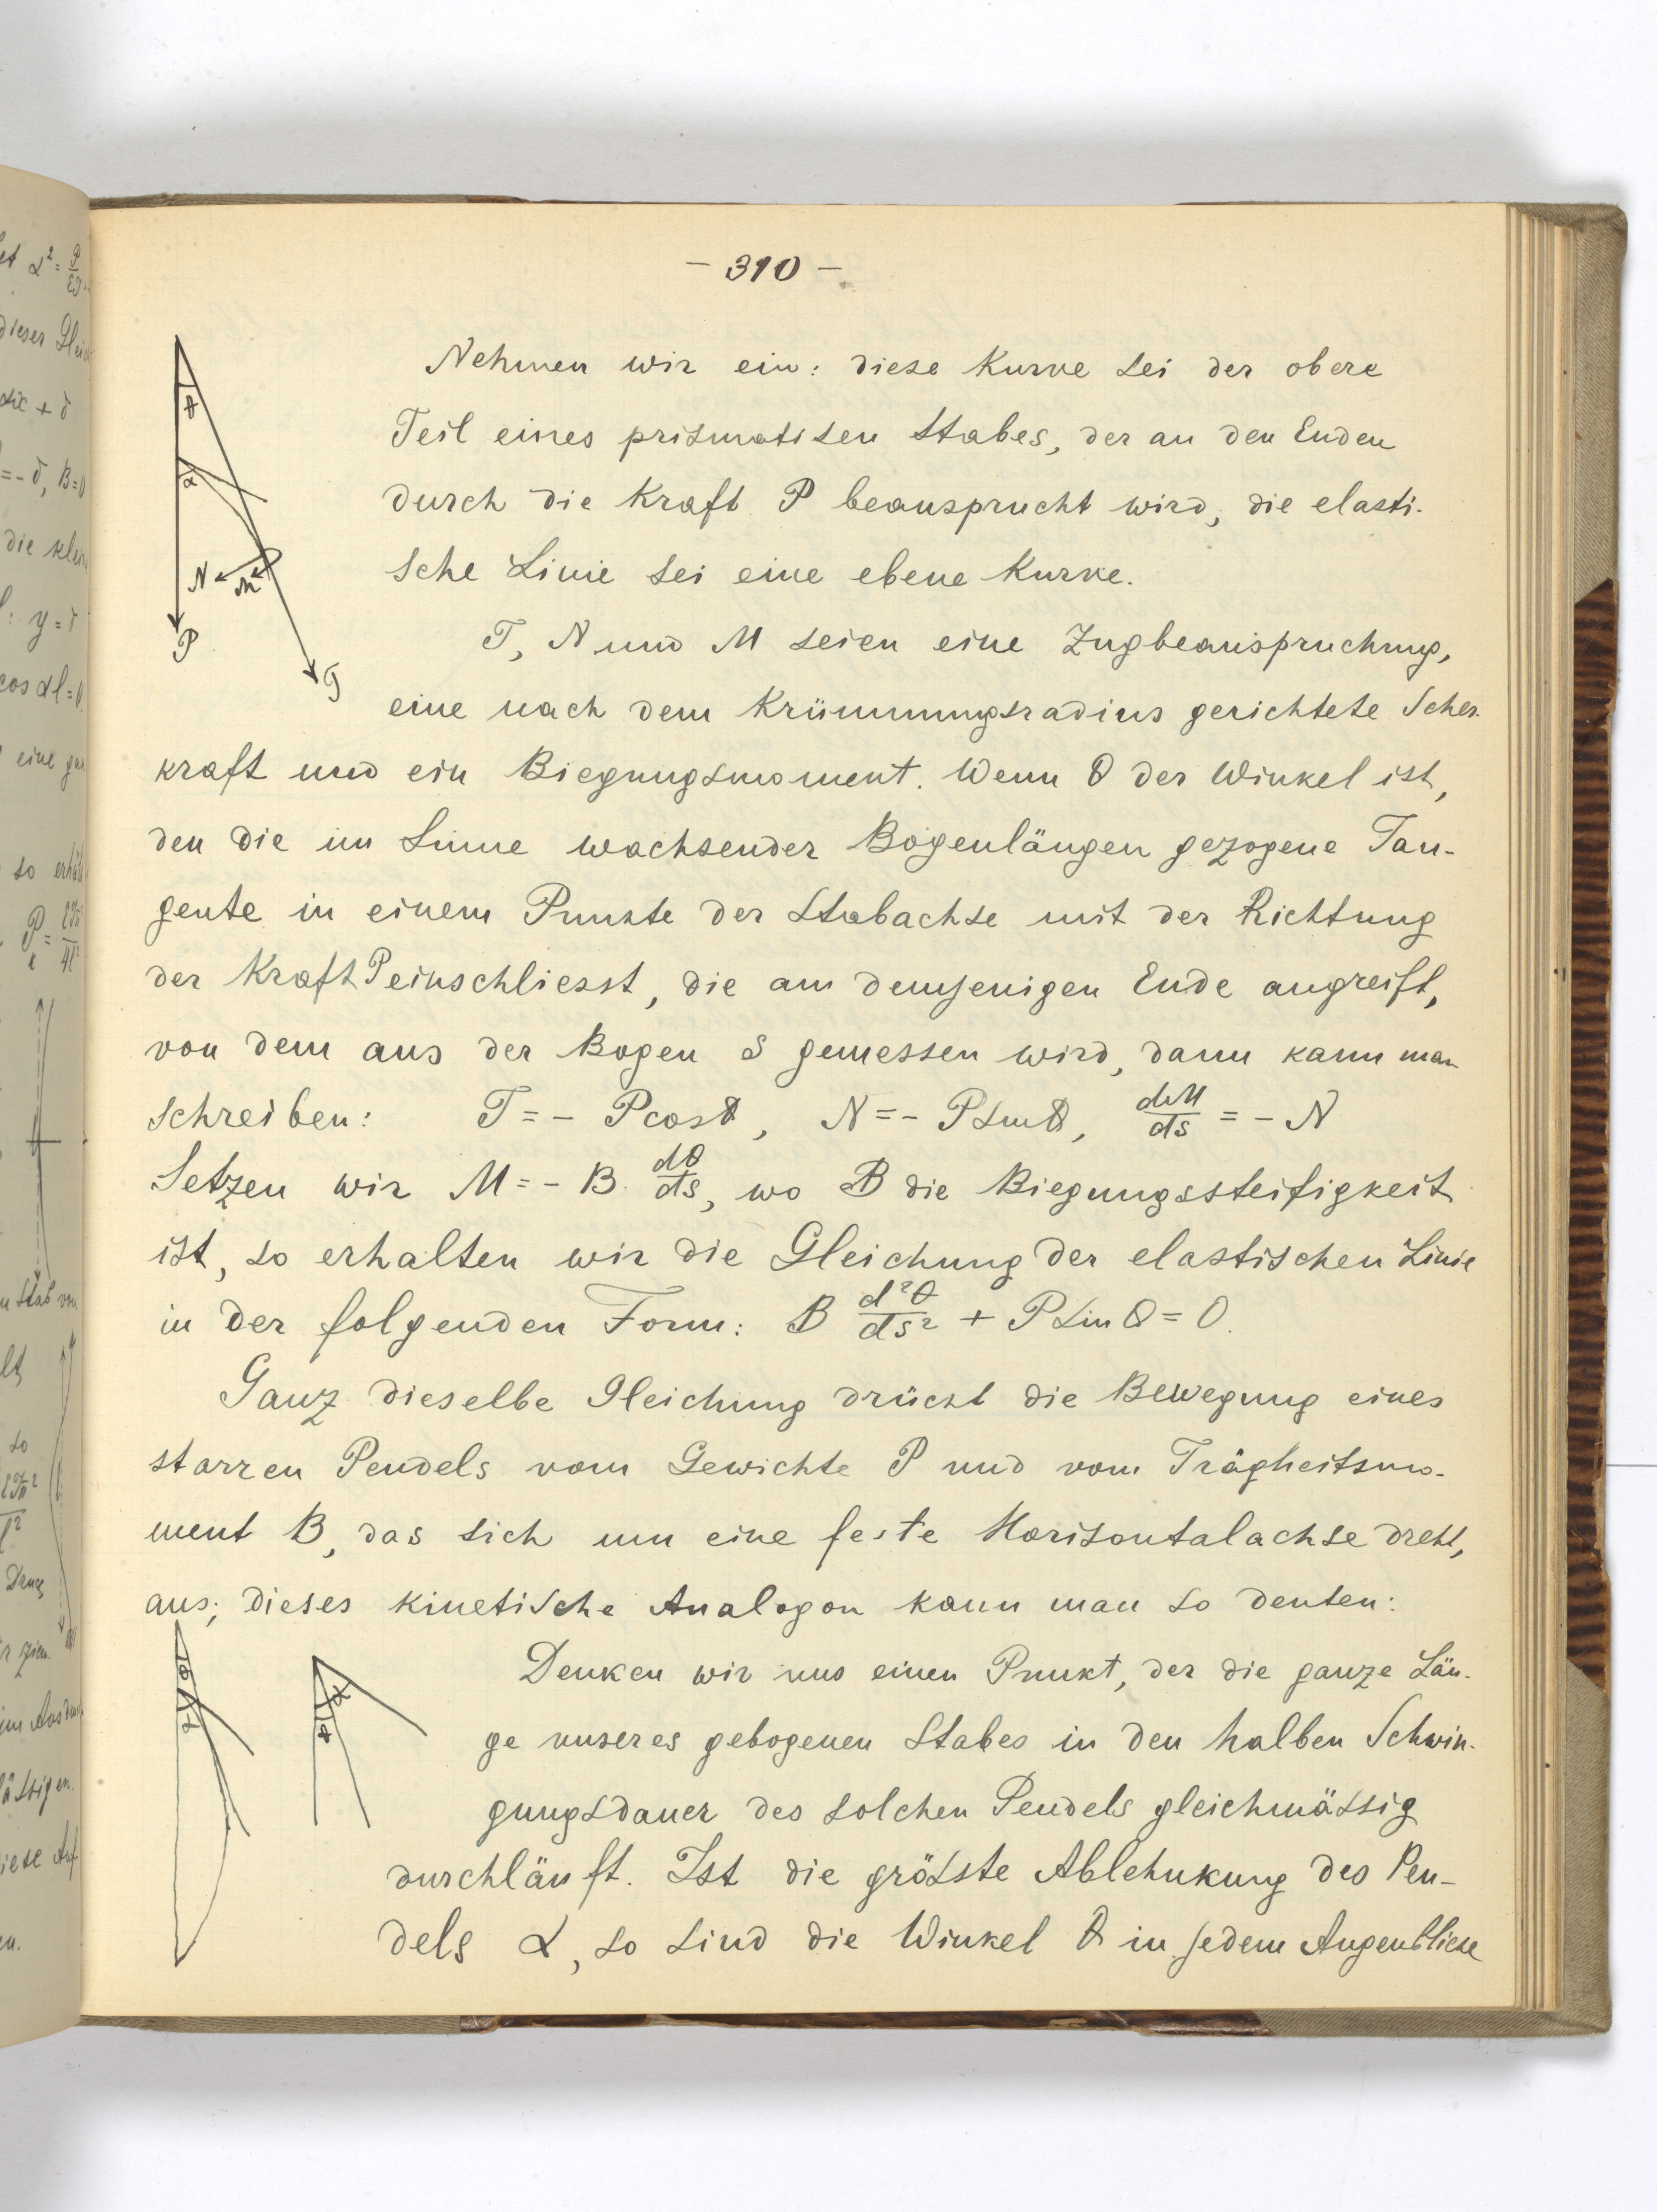 - 310 -
Nehmen wir ein: diese Kurve sei der obere
Teil eines prismatisen Stabes, der an den Enden
durch die Kraft P beansprucht wird, die elasti-
sche Linie sei eine ebene Kurve.
T, N und M seien eine Zugbeanspruchung,
eine nach dem Krümmungsradius gerichtete Scher-
kraft und ein Biegungsmoment. Wenn θ der Winkel ist,
den die im Sinne wachsender Bogenlängen gezogene Tan-
gente in einem Punkte der Stabachse mit der Richtung
der Kraft P einschliesst, die am demjenigen Ende angreift,
von dem aus der Bogen s gemessen wird, dann kann man
schreiben: T = - P cos θ, N = - P sin θ, dM/ds = - N
Setzen wir M = - B. dθ/ds, wo B die Biegungssteifigkeit
ist, so erhalten wir die Gleichung der elastischen Linie
in der folgenden Form: B d²θ/ds² + P sin θ = 0.
Ganz dieselbe Gleichung drückt die Bewegung eines
starren Pendels vom Gewichte P und vom Trägheitsmo-
ment B, das sich um eine feste Horisontalachse dreht,
aus; dieses kinetische Analogon kann man so deuten:
Denken wir uns einen Punkt, der die ganze Län-
ge unseres gebogenen Stabes in den halben Schwin-
gungsdauer des solchen Pendels gleichmässig
durchläuft. Ist die grösste Ablehnkung des Pen-
dels α, so sind die Winkel θ in jedem Augenblicke
θ
α
N
M
P
T
θ
α
α
θ